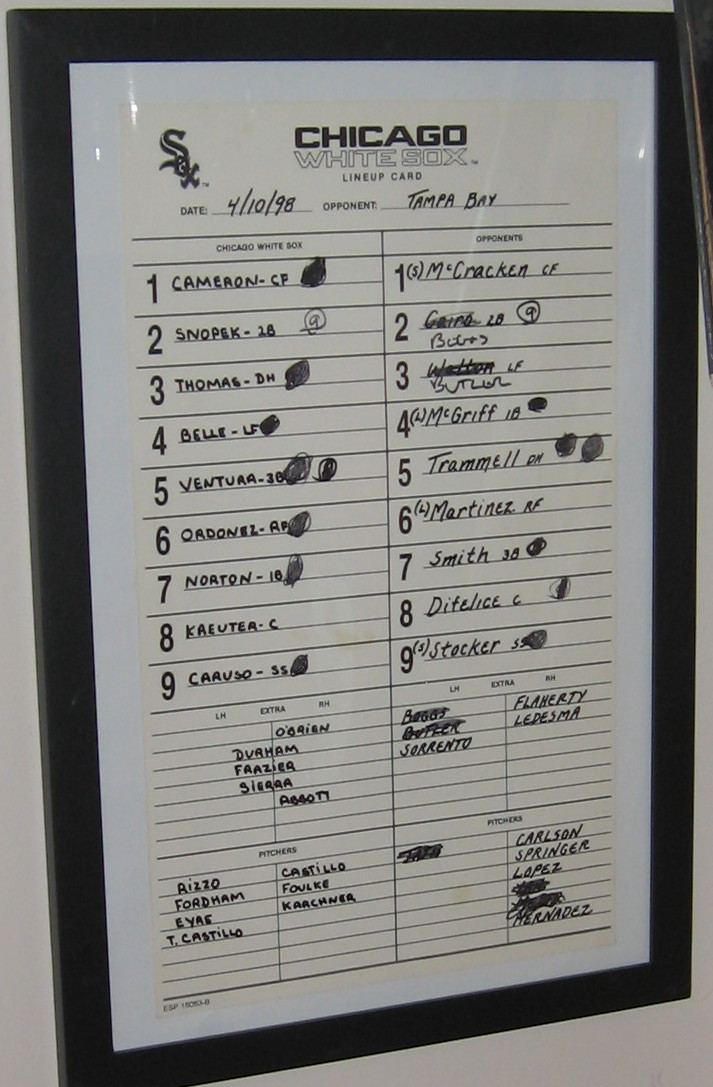 Sox TM
CHICAGO
WHITE SOX TM
LINEUP CARD
DATE: 4/10/98 OPPONENT: TAMPA BAY
CHICAGO WHITE SOX
1 CAMERON - CF
2 SNOPEK - 2B 9
3 THOMAS - DH
4 BELLE - LF
5 VENTURA - 3B
6 ORDONEZ - RF
7 NORTON - 1B
8 KREUTER - C
9 CARUSO - SS
LH EXTRA RH
O'BRIEN
DURHAM
FRAZIER
SIERRA
ABBOTT
PITCHERS
RIZZO CASTILLO
FORDHAM FOULKE
EYRE KARCHNER
T. CASTILLO
OPPONENTS
1 (S) McCracken CF
2 Cairo 2B 9
Boggs
3 LF
BUTLER
4 (L) McGriff 1B
5 Trammell DH
6 (L) Martinez RF
7 Smith 3B
8 Difelice C
9 (S) Stocker SS
LH EXTRA RH
BOGGS FLAHERTY
BUTLER LEDESMA
SORRENTO
PITCHERS
CARLSON
SPRINGER
LOPEZ
HERNADEZ
ESP 15053-B